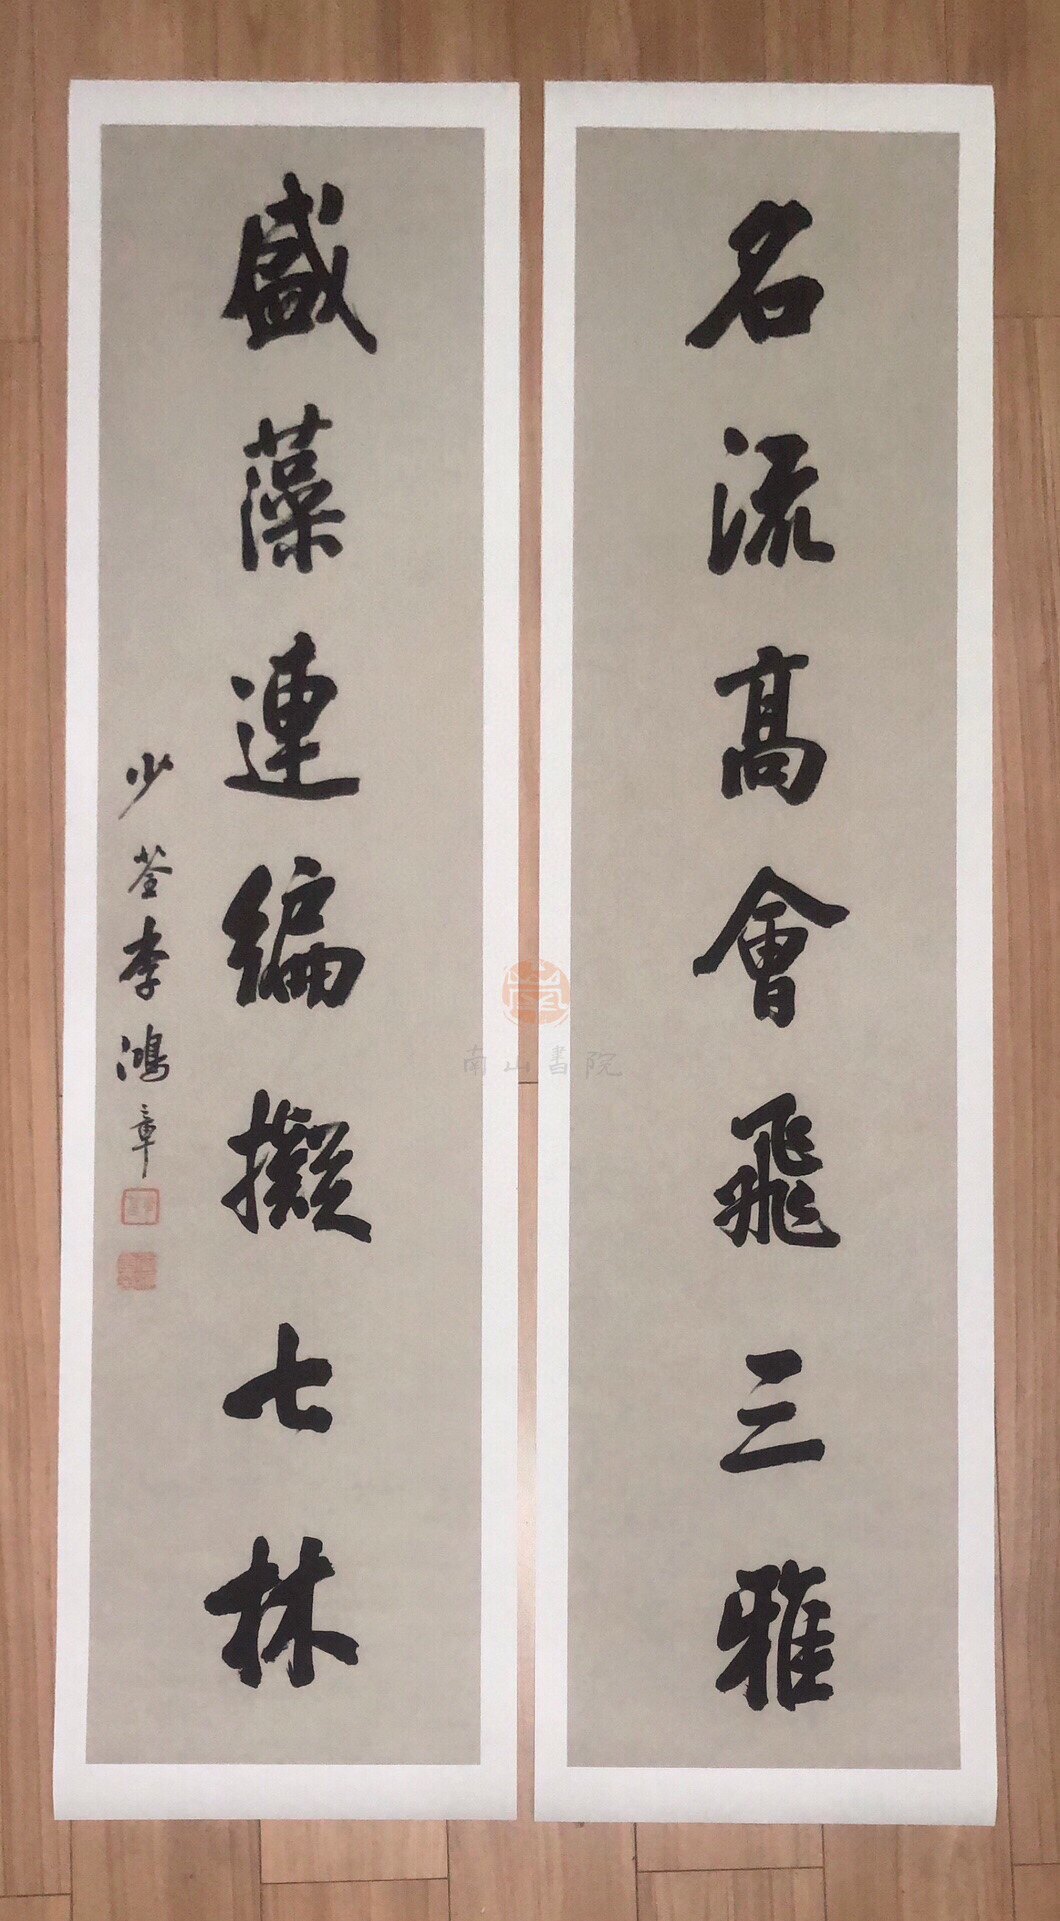 名流高會飛三雅
盛藻連編擬七林
少荃李鴻章
南山書院